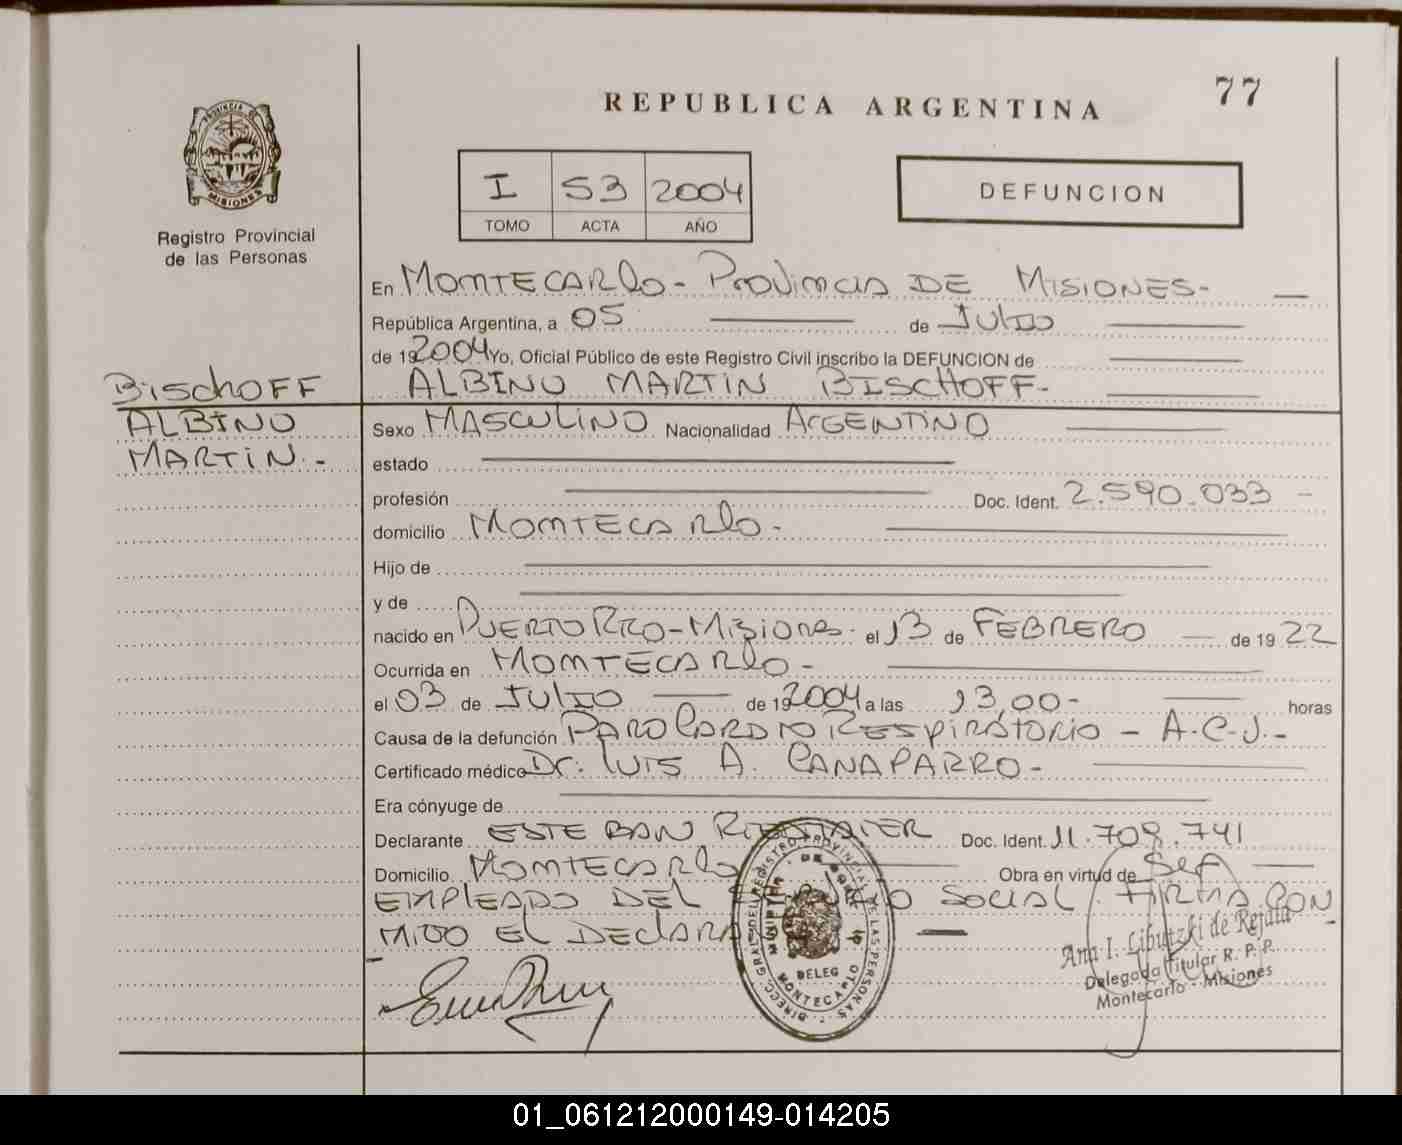 77
REPUBLICA ARGENTINA
I 53 2004
TOMO ACTA AÑO
DEFUNCION
PROVINCIA DE
MISIONES
Registro Provincial
de las Personas
En MONTECARLO - PROVINCIA DE MISIONES-
República Argentina, a 05 de JULIO
de 192004 Yo, Oficial Público de este Registro Civil inscribo la DEFUNCION de
BISCHOFF
ALBINO MARTIN BISCHOFF-
ALBINO
MARTIN.-
Sexo MASCULINO Nacionalidad ARGENTINO
estado
profesión Doc. Ident. 2.590.033 -
domicilio MONTECARLO-
Hijo de
y de
nacido en PUERTO RICO - Misiones. el 13 de FEBRERO de 1922
Ocurrida en MONTECARLO-
el 03 de JULIO de 192004 a las 13,00- horas
Causa de la defunción PARO CARDIO RESPIRATORIO - A.C.J.-
Certificado médico Dr. LUIS A. CANAPARRO-
Era cónyuge de
Declarante ESTEBAN Doc. Ident. 11.709.741
Domicilio MONTECARLO Obra en virtud de SER
EMPLEADO DEL SOCIAL. FIRMA CON
MIGO EL DECLARA
DIRECC. GRAL. DEL REGISTRO PROVINCIAL DE LAS PERSONAS
DELEG
MONTECARLO
Ana I. Libutzki de Rejala
Delegada Titular R. P. P.
Montecarlo - Misiones
01_061212000149-014205